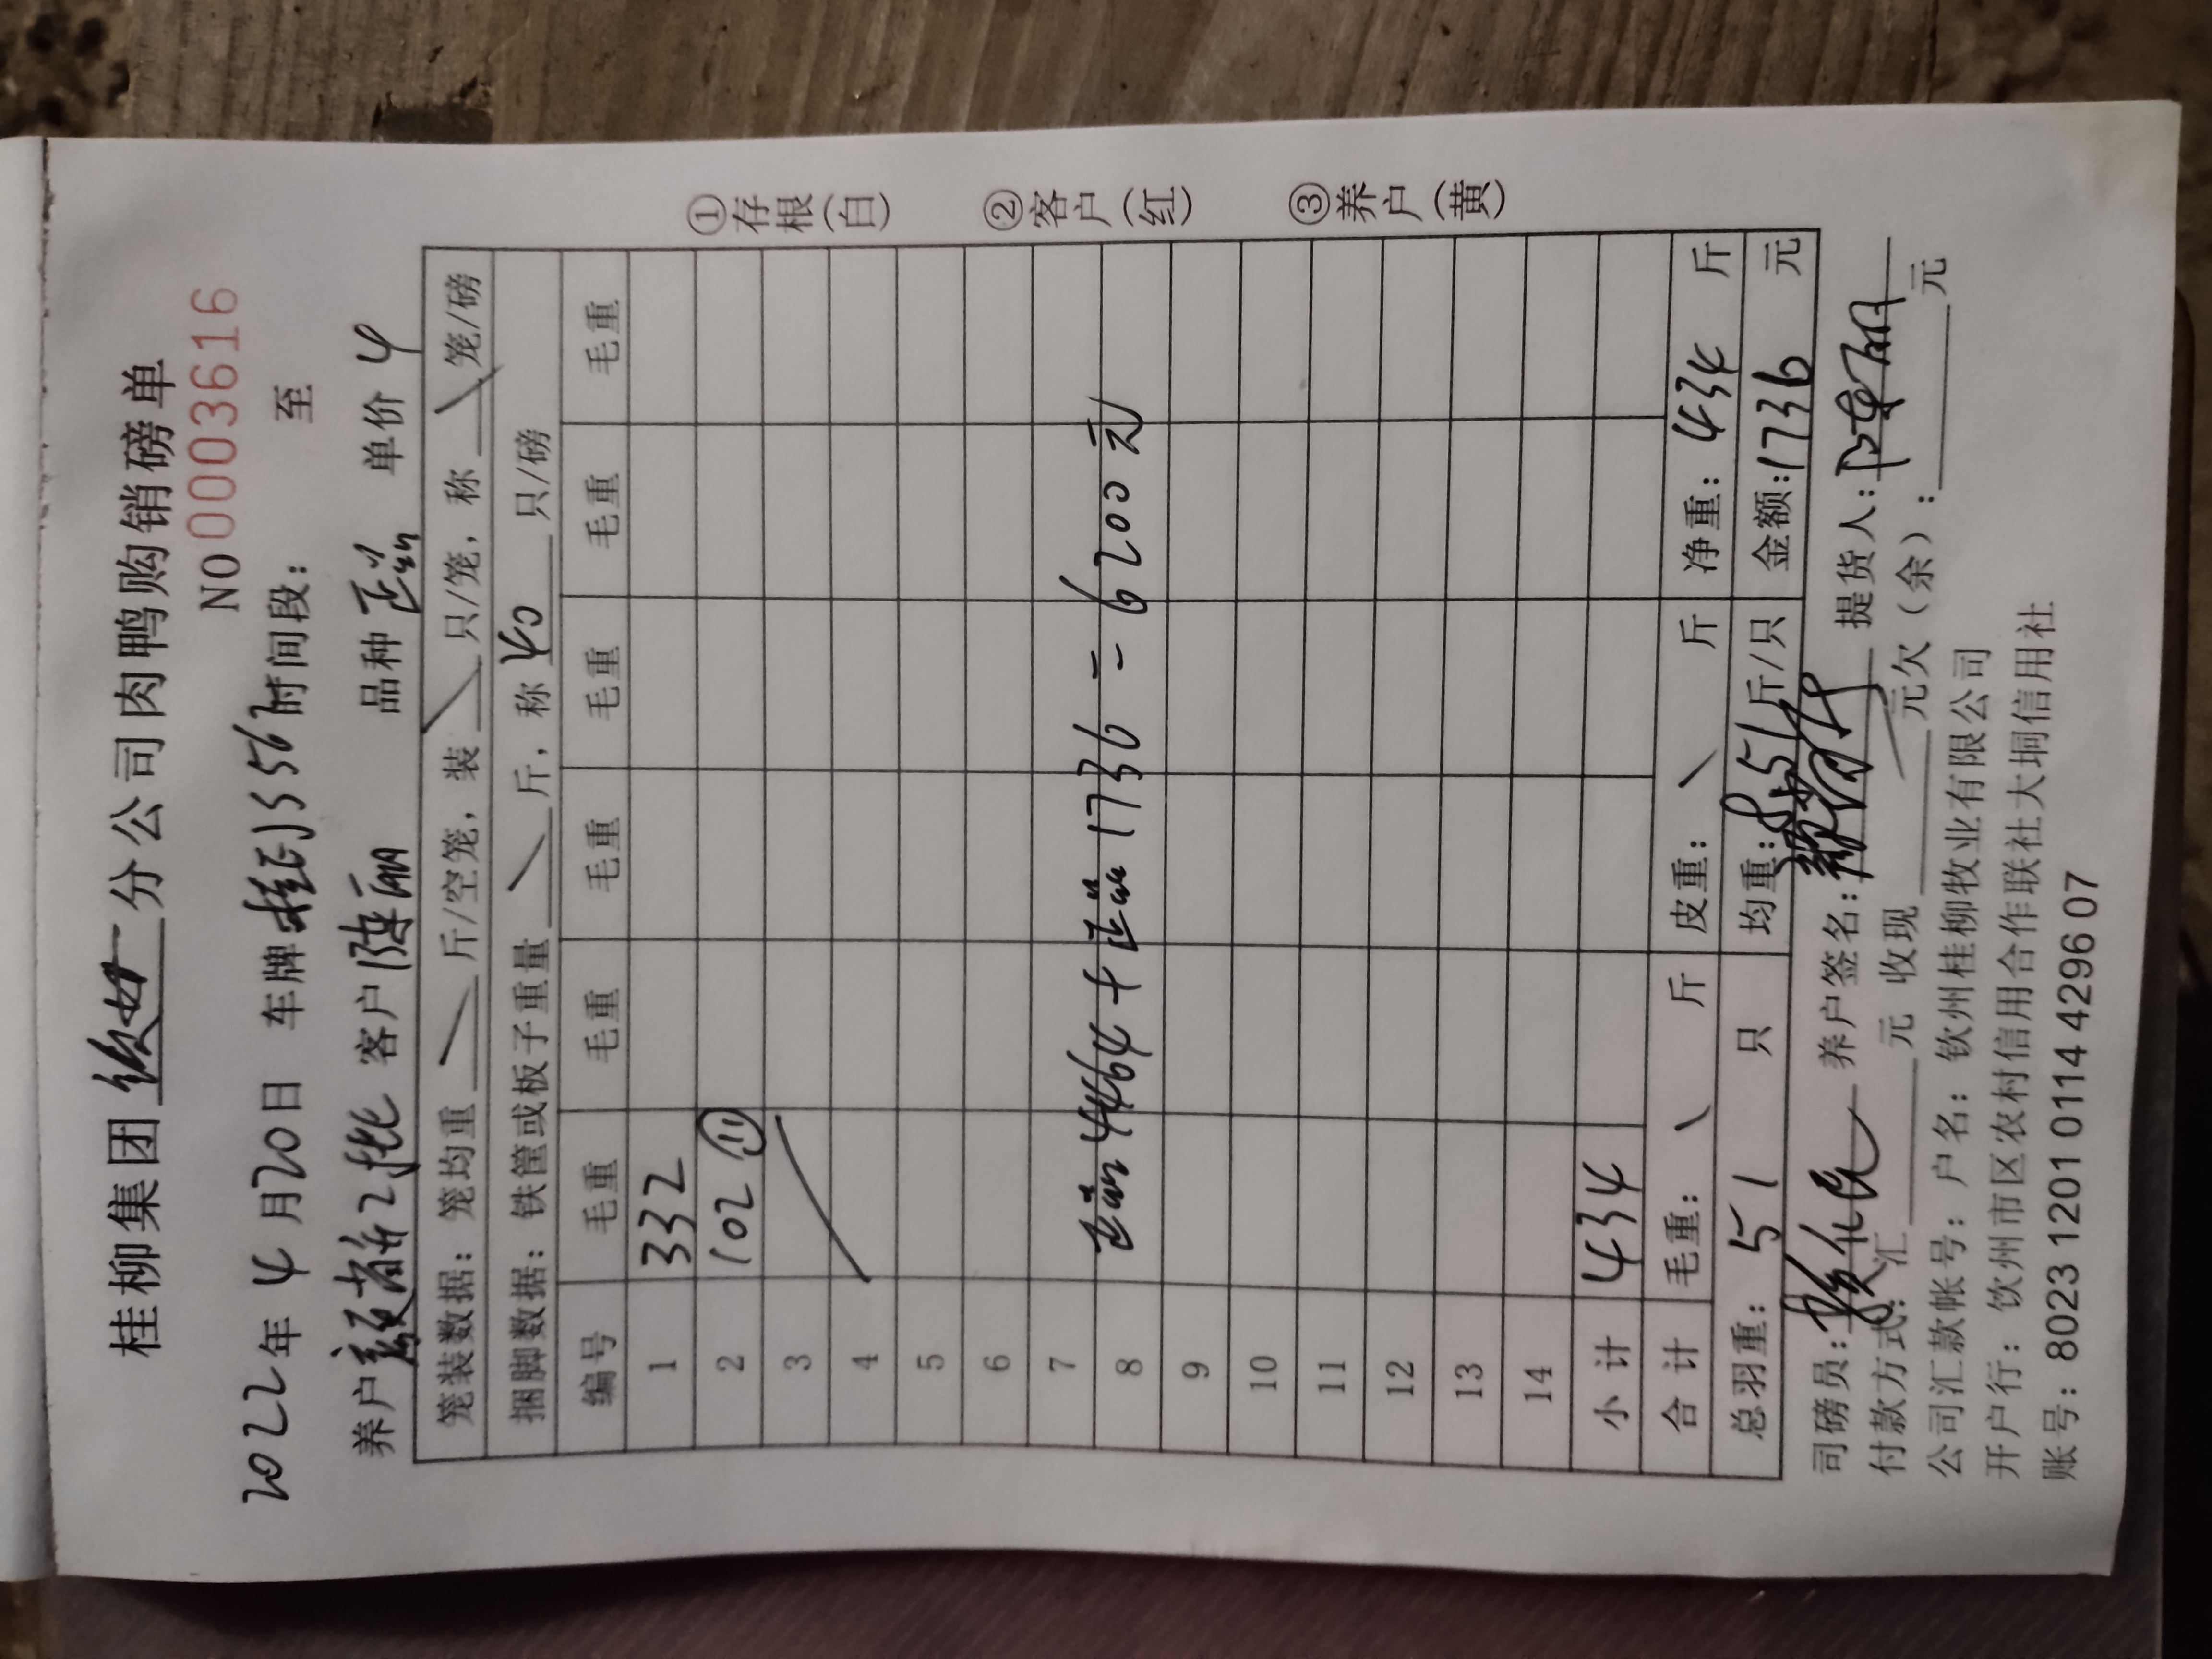 桂柳集团 钦州 分公司肉鸭购销磅单
NO 0003616
2022年 4月20日 车牌 桂EJS567 时间段： 至
养户 2批 客户 陈丽 品种 正 单价 4
笼装数据：笼均重 斤/空笼，装 只/笼，称 笼/磅
捆脚数据：铁筐或板子重量 斤，称 40 只/磅
编号 毛重 毛重 毛重 毛重 毛重 毛重
1 332
2 102 ⑪
3
4
5
6
7
8 4464 + 正 1736 = 6200元
9
10
11
12
13
14
小计 434
合计 毛重： 斤 皮重： 斤 净重：434 斤
总羽重：51 只 均重：8.51斤/只 金额：1736 元
司磅员： 养户签名： 提货人：陈丽
付款方式：汇 元 收现 元欠（余）： 元
公司汇款帐号：户名：钦州桂柳牧业有限公司
开户行：钦州市区农村信用合作联社大垌信用社
账号：8023 1201 0114 4296 07
①存根（白） ②客户（红） ③养户（黄）